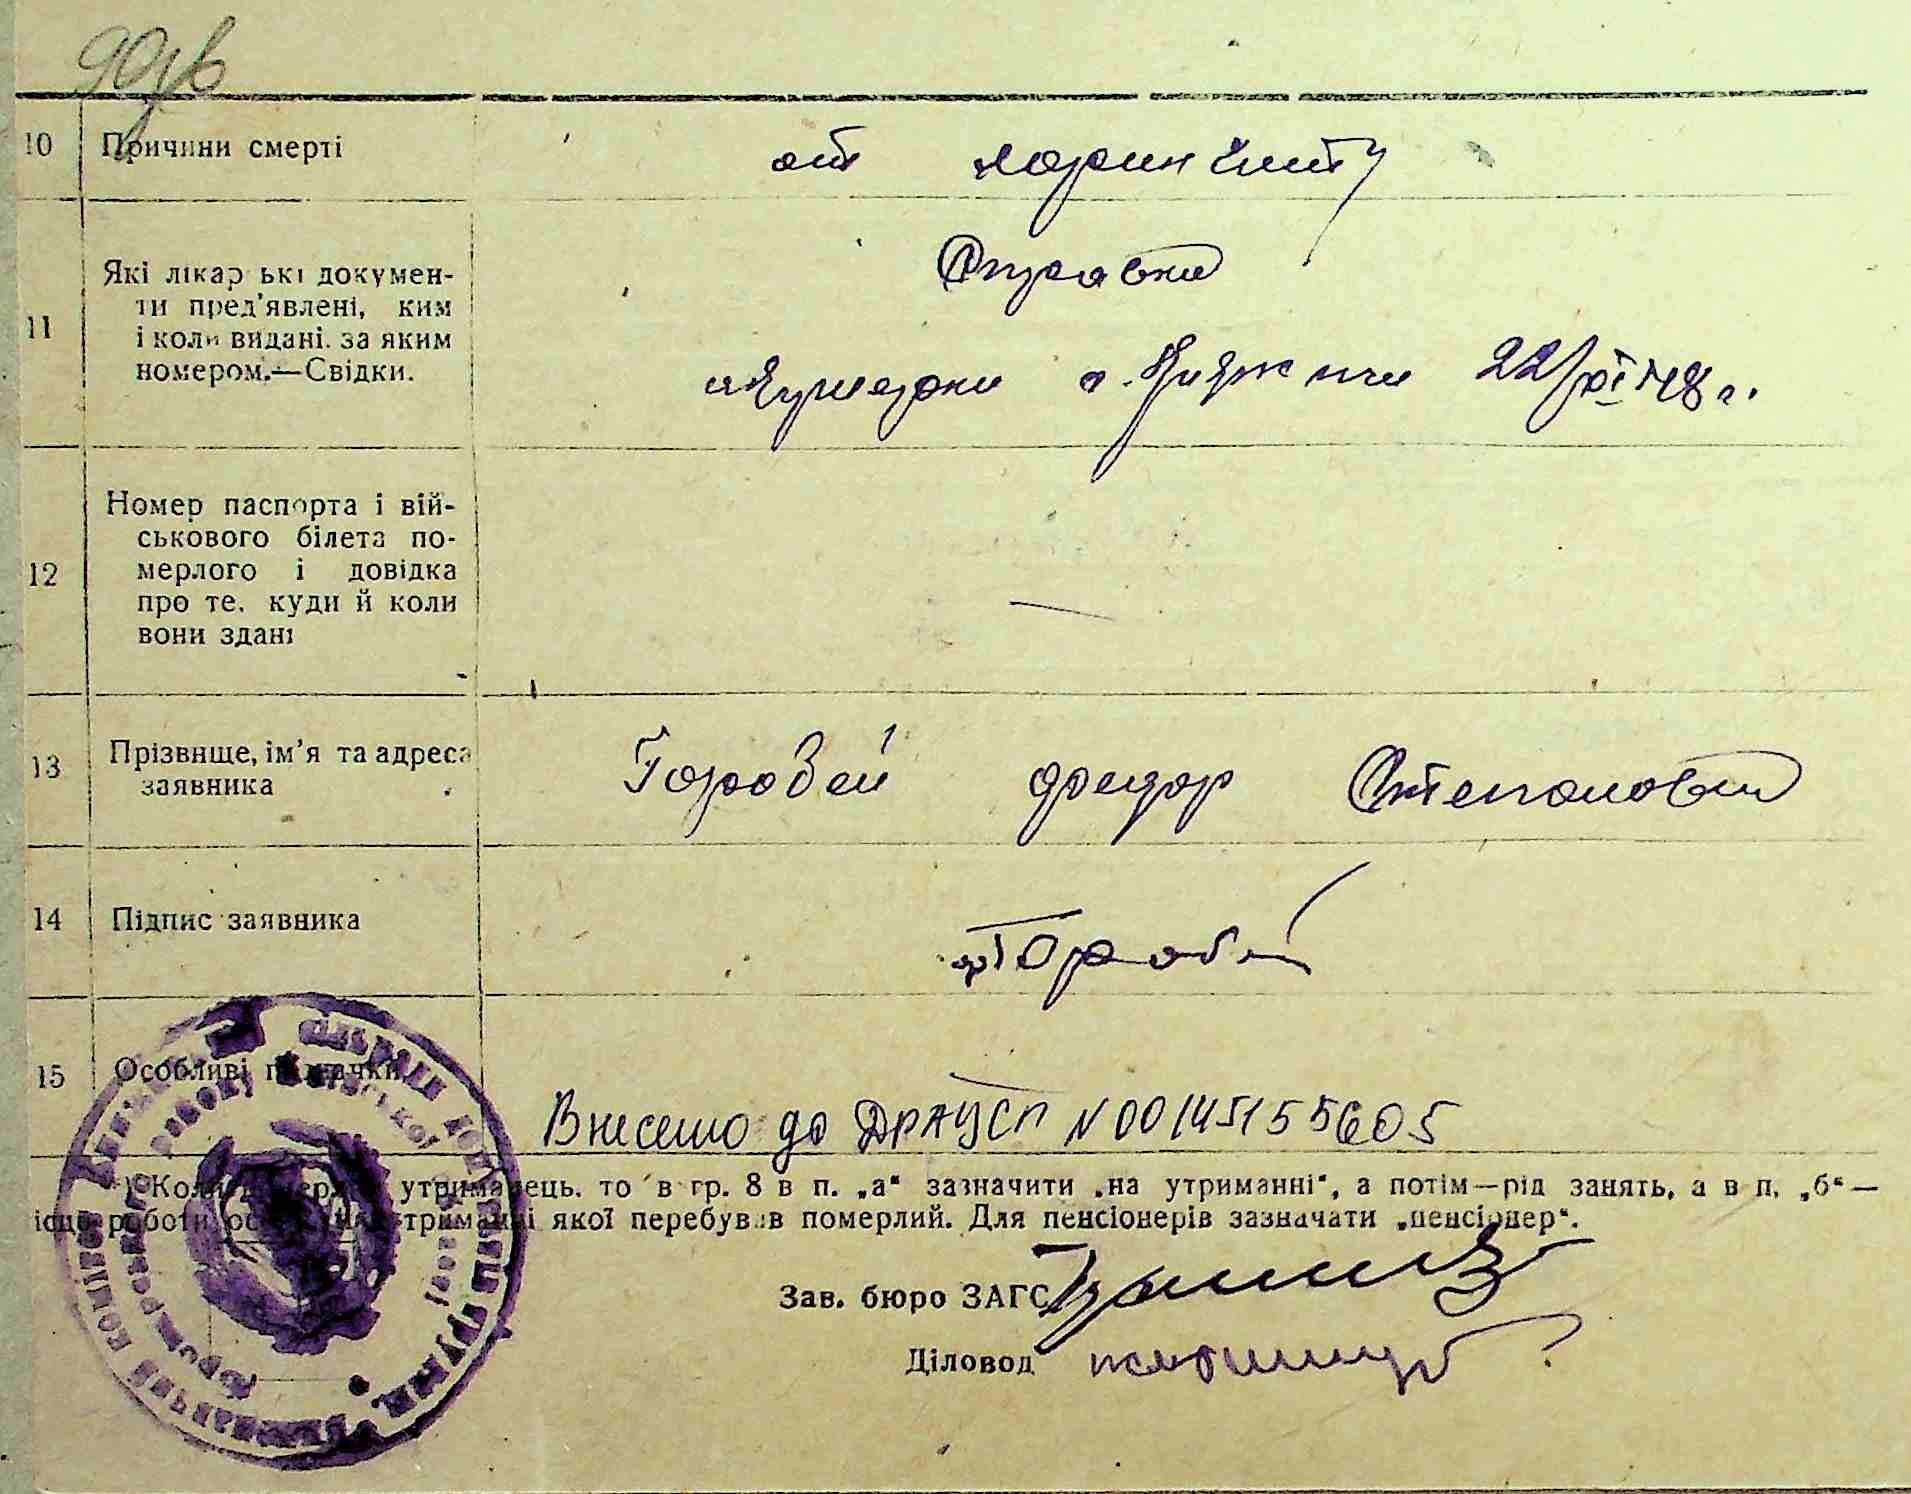 10 Причини смерті от ларингиту
11 Які лікарські докумен-
ти пред'явлені, ким
і коли видані. за яким
номером.—Свідки.
Справка
акушерки 22/XI 48 г.
12 Номер паспорта і вій-
ськового білета по-
мерлого і довідка
про те, куди й коли
вони здані
—
13 Прізвище, ім'я та адреса
заявника
Горовей Федор Степанович
14 Підпис заявника
15 Особливі
Внесено до ДРАЦСГ N00145155605
утриманець. то в гр. 8 в п. „а“ зазначити „на утриманні“, а потім—рід занять, а в п. „б“ —
роботи якої перебував померлий. Для пенсіонерів зазначати „пенсіонер“.
Зав. бюро ЗАГС
Діловод